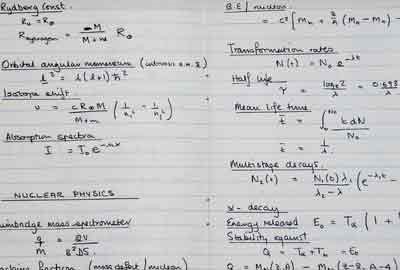 Rydberg Const.
R₀ = R∞
R_hydrogen = M / (M + m) R∞
Orbital angular momentum (intrinsic
l² = l(l+1) ħ²
Isotope shift.
υ = cR∞M / (M+m) (1/n₁² − 1/n₂²)
Absorption spectra
I = I₀ e^
NUCLEAR PHYSICS
mass spectrometer
q/m = 2V / B²DS
fraction (mass defect / nucleon)
B.E / nucleon
= c² [ Mn + (MH − Mn) −
Transformation rates
N(t) = N₀ e^−λt
Half life
τ = loge2 / λ = 0.693
Mean life time
t̄ = ∫₀^N₀ t dN / N₀
t̄ = 1/λ
Multistage decays.
N₂(t) = N₁(0) λ₁ / (λ₂ − λ) (e^−λ₁t −
α - decay
Energy released E₀ = Tα (1 +
Stability against
Q = Tα + Tb = E₀
Q = (Z,A) − (Z-2, A-4)